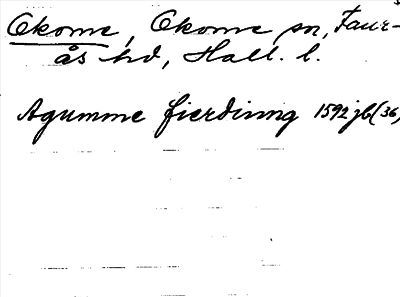 Okome, Okome sn, Faur-
ås hd, Hall. l.
Agumme fierdinng 1592 jb (36)